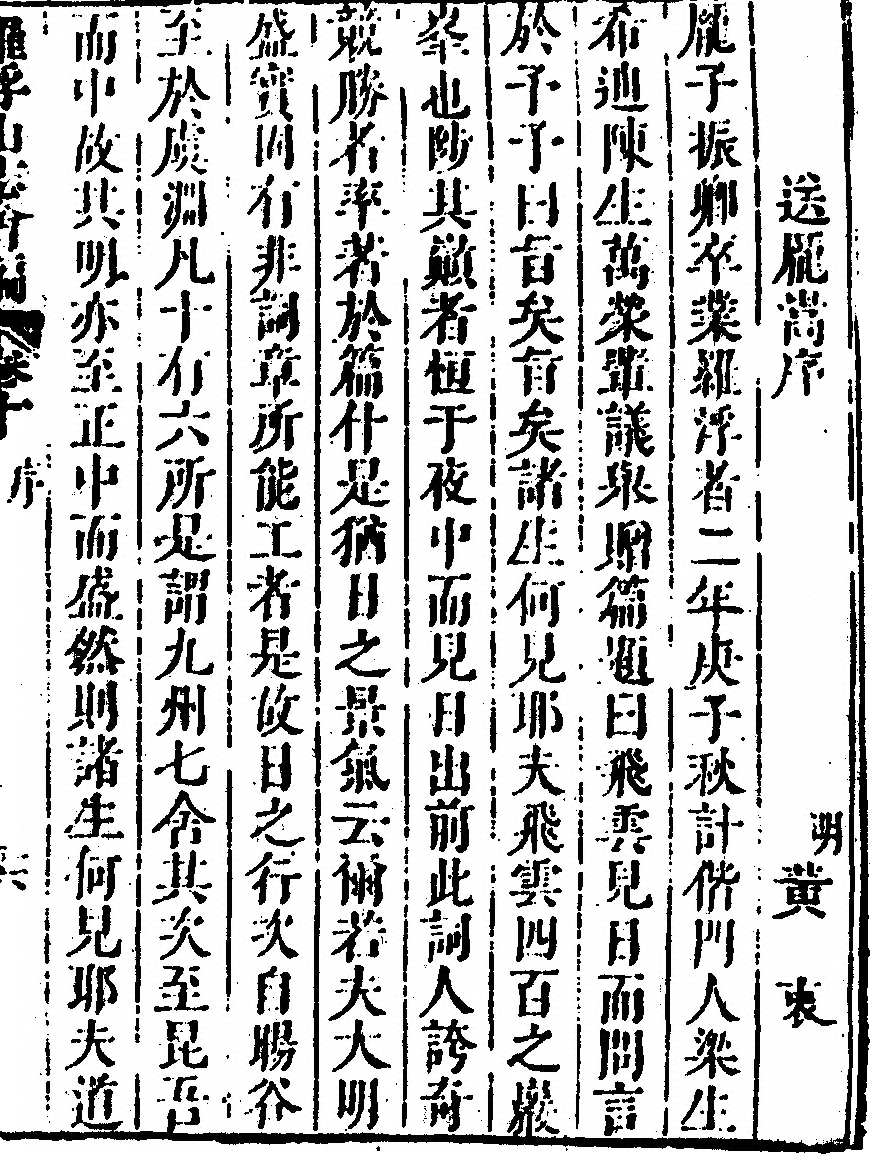 送龐嵩序
明黃衷
龐子振卿卒業羅浮者二年庚子秋計偕門人梁生
希迪陳生萬榮曁議泉贈篇進曰飛雲見日而問言
於予予曰旨矣旨矣諸生何見耶夫飛雲四百之巖
峯也陟其巓者恒于夜中而見日出前此詞人誇奇
競勝者率著於篇什是猶日之景氣云爾若夫大明
盛實固有非詞章所能工者是故日之行次自暘谷
至於虞淵凡十有六所是謂九州七舍其次至昆吾
而中故其明亦至正中而盛然則諸生何見耶夫道
羅浮山志會編 卷十 序